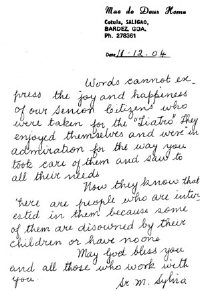 Mae de Deus Home
Cotula, SALIGAO,
BARDEZ, GOA.
Ph. 278361
Date 18-12.04
Words cannot ex-
press the joy and happiness
of our Senior Citizens who
were taken for the "Tiatro" They
enjoyed themselves and were in
admiration for the way you
took care of them and saw to
all their needs
Now they know that
there are people who are inter-
ested in them because some
of them are disowned by their
children or have no one
May God bless you
and all those who work with
you
Sr M. Sylvia